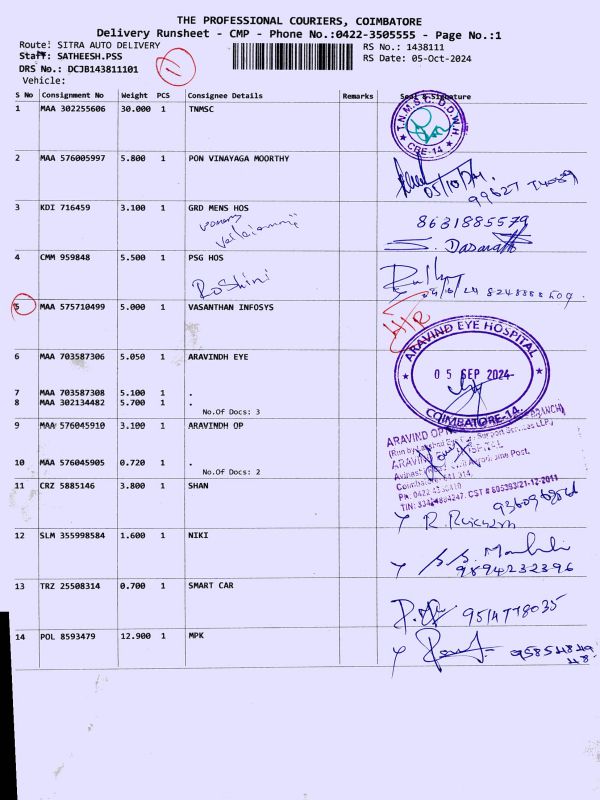 THE PROFESSIONAL COURIERS, COIMBATORE
Delivery Runsheet - CMP - Phone No.:0422-3505555 - Page No.:1
Route: SITRA AUTO DELIVERY
RS No.: 1438111
Staff: SATHEESH.PSS
RS Date: 05-Oct-2024
DRS No.: DCJB143811101
Vehicle:
11
S No Consignment No Weight PCS Consignee Details Remarks Seal & Signature
1 MAA 302255606 30.000 1 TNMSC
T.N.M.S.C. D.D.W.H.
CBE-14
2 MAA 576005997 5.800 1 PON VINAYAGA MOORTHY
05/10/24
3 KDI 716459 3.100 1 GRD MENS HOS
8631885579
S. Dasarath
4 CMM 959848 5.500 1 PSG HOS
Roshini
5 MAA 575710499 5.000 1 VASANTHAN INFOSYS
6 MAA 703587306 5.050 1 ARAVINDH EYE
ARAVIND EYE HOSPITAL
05 SEP 2024
COIMBATORE-14.
7 MAA 703587308 5.100 1 .
8 MAA 302134482 5.700 1 .
No.Of Docs: 3
9 MAA 576045910 3.100 1 ARAVINDH OP
10 MAA 576045905 0.720 1 .
No.Of Docs: 2
11 CRZ 5885146 3.800 1 SHAN
12 SLM 355998584 1.600 1 NIKI
9894232396
13 TRZ 25508314 0.700 1 SMART CAR
9514778035
14 POL 8593479 12.900 1 MPK